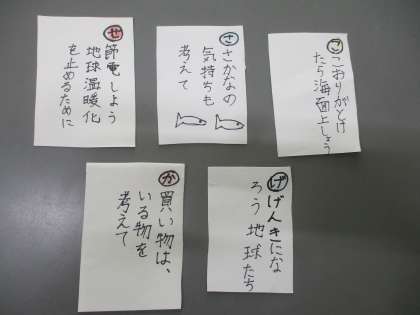 せ
節電しよう
地球温暖化
を止めるために
さ
さかなの
気持ちも
考えて
こ
こおりがとけ
たら海面上しょう
か
買い物は、
いる物を
考えて
げ
げんきにな
ろう地球たち